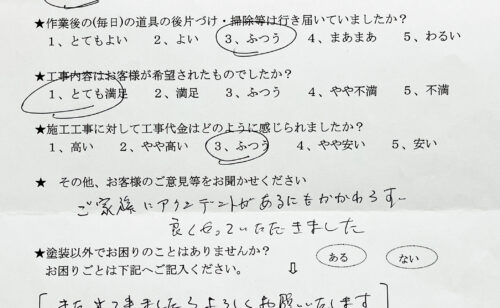 ★作業後の(毎日)の道具の後片づけ・掃除等は行き届いていましたか?
1、とてもよい 2、よい 3、ふつう 4、まあまあ 5、わるい
★工事内容はお客様が希望されたものでしたか?
1、とても満足 2、満足 3、ふつう 4、やや不満 5、不満
★施工工事に対して工事代金はどのように感じられましたか?
1、高い 2、やや高い 3、ふつう 4、やや安い 5、安い
★ その他、お客様のご意見等をお聞かせください
ご家族にアクシデントがあるにもかかわらず
良くやっていただきました
★塗装以外でお困りのことはありませんか? ある ない
お困りごとは下記へご記入ください。 ⇩
また出て来ましたらよろしくお願いいたします